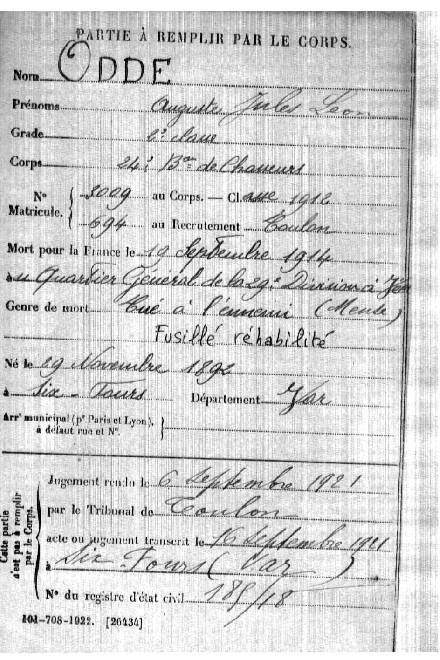 PARTIE À REMPLIR PAR LE CORPS.
Nom ODDE
Prénoms Auguste Jules Léon
Grade 2e classe
Corps 24e Bon de Chasseurs
N° Matricule. { 3009 au Corps. — Classe 1912
694 au Recrutement Toulon
Mort pour la France le 19 Septembre 1914
à au Quartier Général de la 29e Division à
Genre de mort Tué à l'ennemi (Meuse)
Fusillé réhabilité
Né le 29 Novembre 1892
à Six-Fours Département Var
Arrt municipal (pr Paris et Lyon), à défaut rue et N°. }
Cette partie n'est pas à remplir par le Corps.
Jugement rendu le 6 Septembre 1921
par le Tribunal de Toulon
acte ou jugement transcrit le 16 Septembre 1921
à Six Fours (Var)
N° du registre d'état civil 185/18
101-708-1922. [26434]